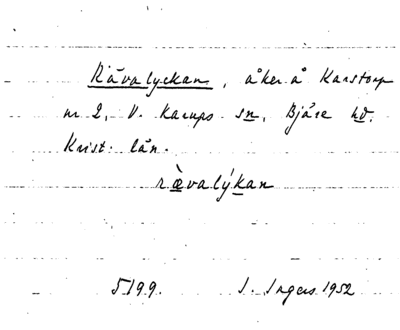 Rävalyckan, åker å Karstorp
nr 2, V. Karups sn, Bjäre hd.
Krist. län.
rævalýkan
5199. I. Ingers 1952